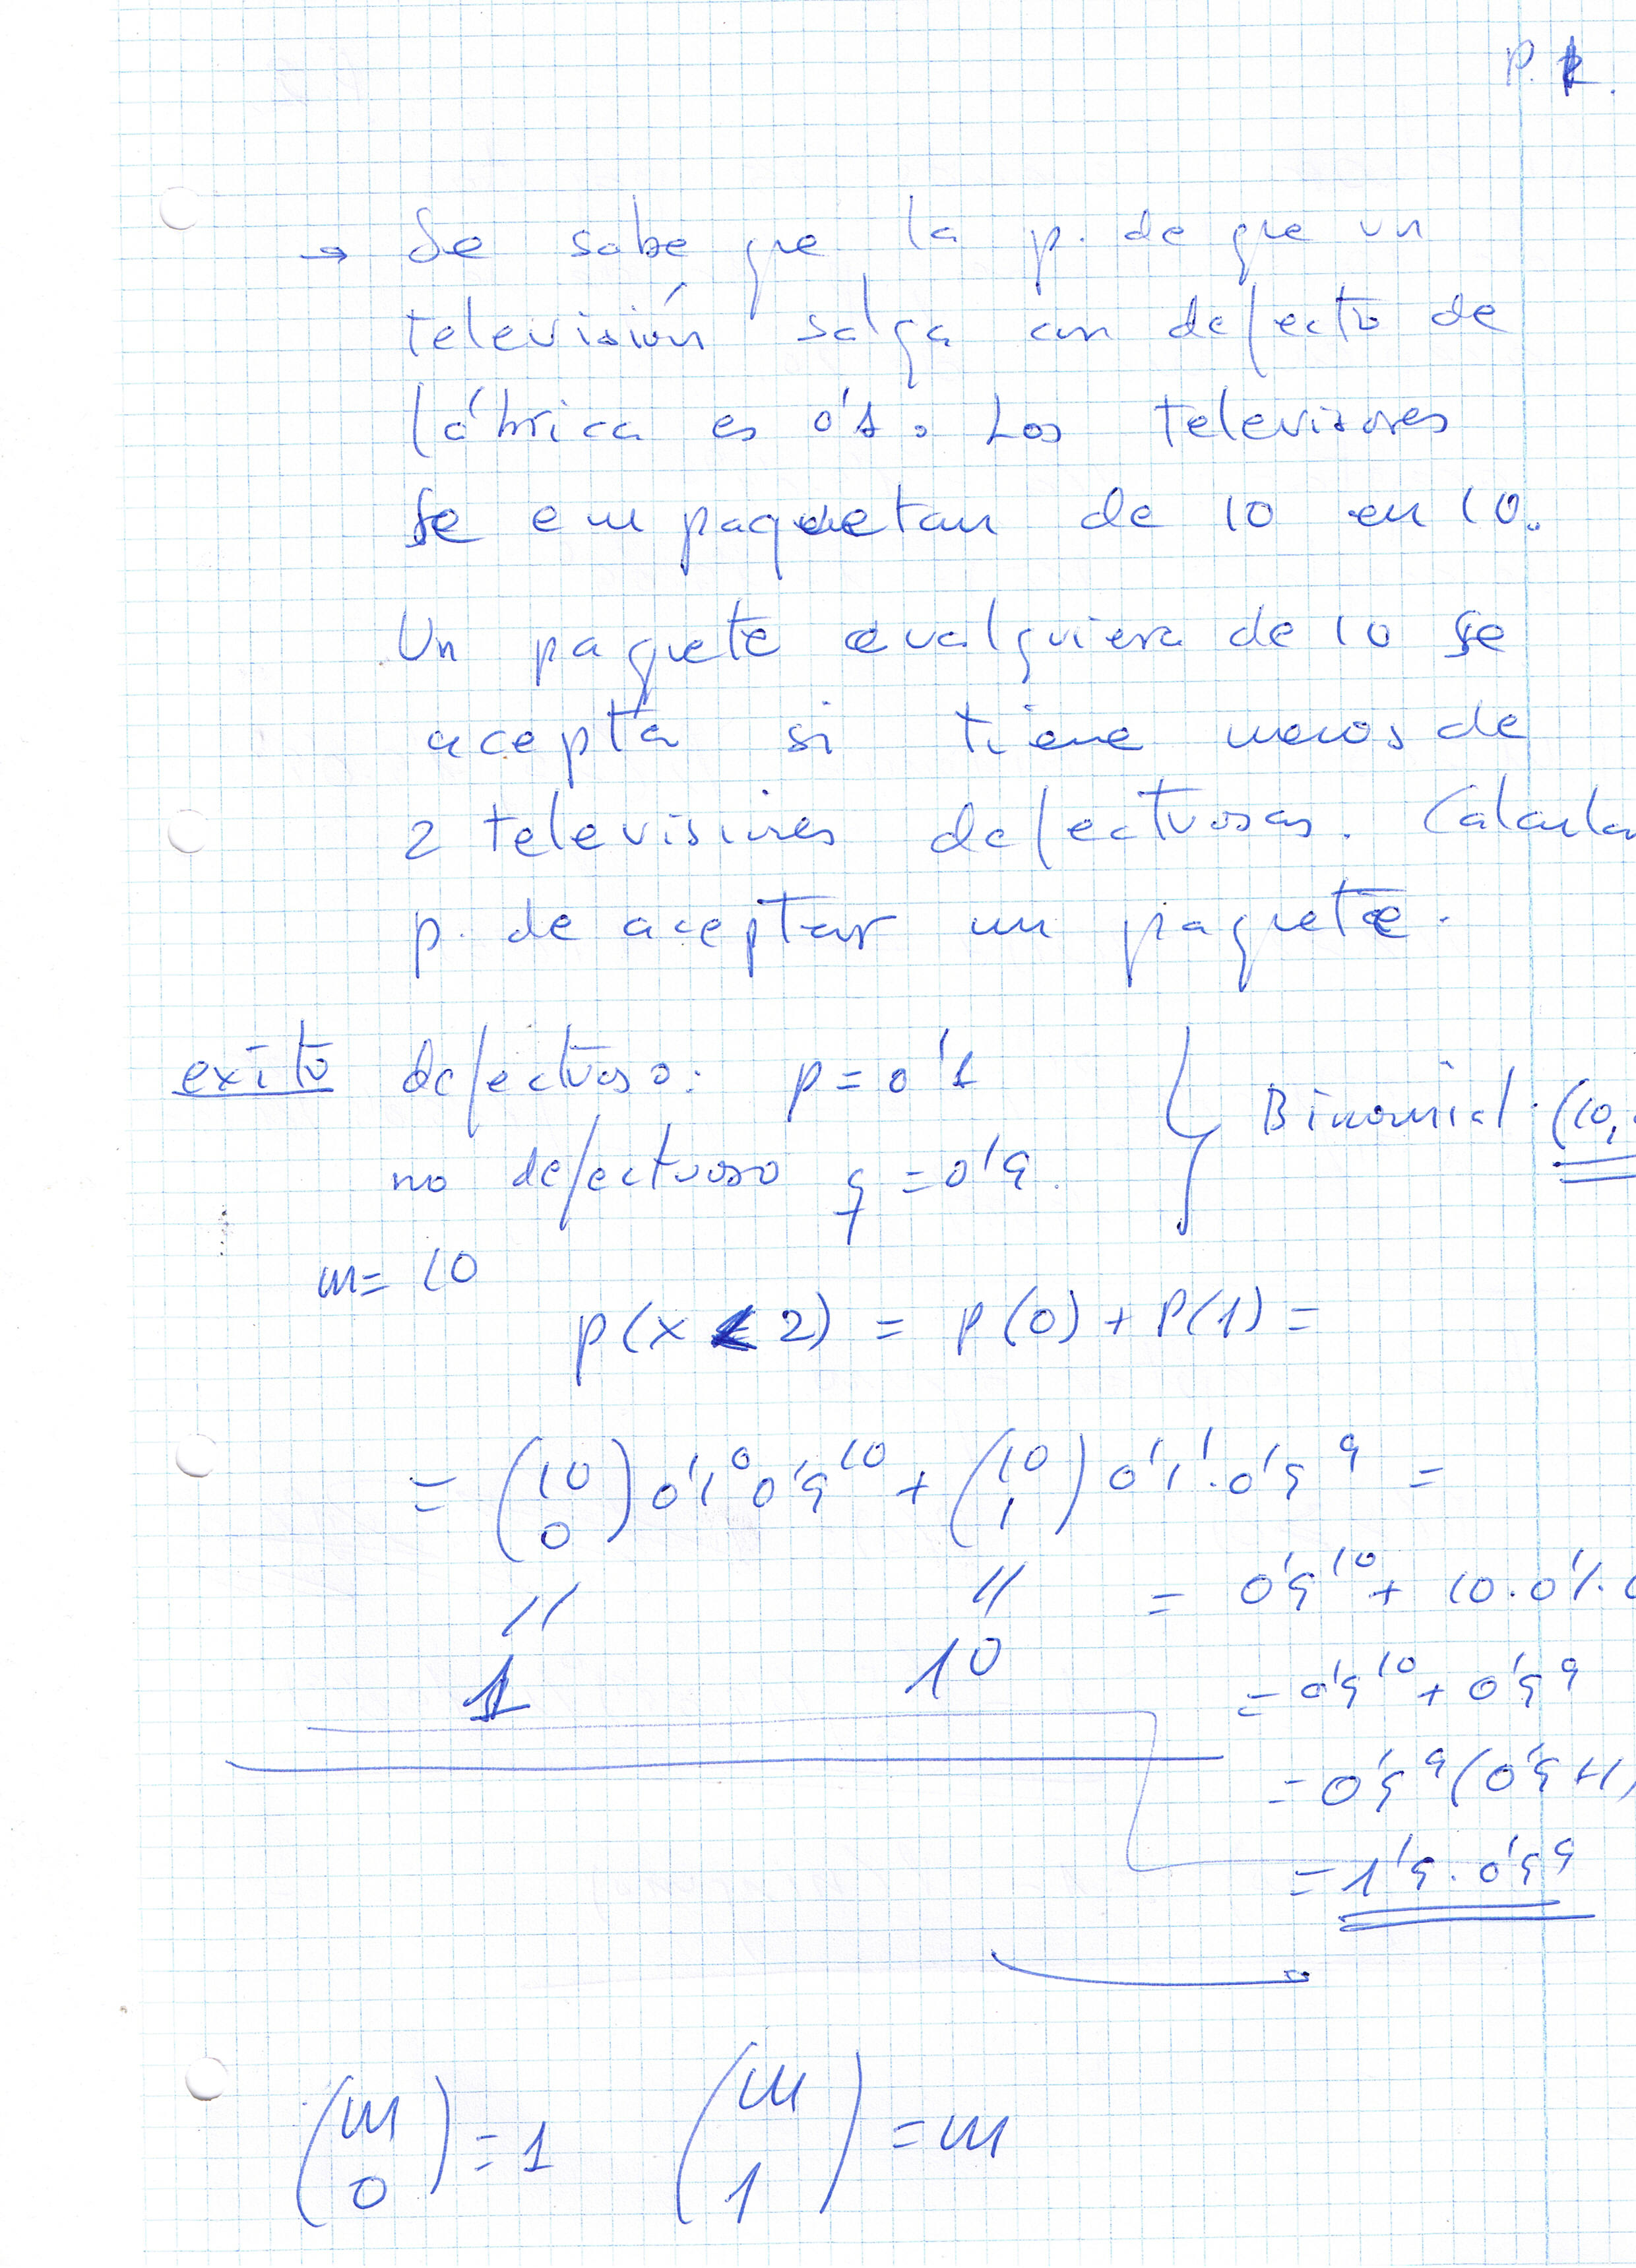 p. 1.
→ Se sabe que la p. de que un
televisión salga con defecto de
fábrica es 0'1. Los televisores
se empaquetan de 10 en 10.
Un paquete cualquiera de 10 se
acepta si tiene menos de
2 televisiones defectuosas. Calcula
p. de aceptar un paquete.
exito defectuoso: p = 0'1 } Binomial (10,
no defectuoso q = 0'9.
n = 10
p(x < 2) = p(0) + p(1) =
= (10 0) 0'1^0 0'9^10 + (10 1) 0'1^1 · 0'9^9 =
// // = 0'9^10 + 10 · 0'1 ·
1 10
= 0'9^10 + 0'9^9
= 0'9^9 (0'9 + 1)
= 1'9 · 0'9^9
(n 0) = 1 (n 1) = n